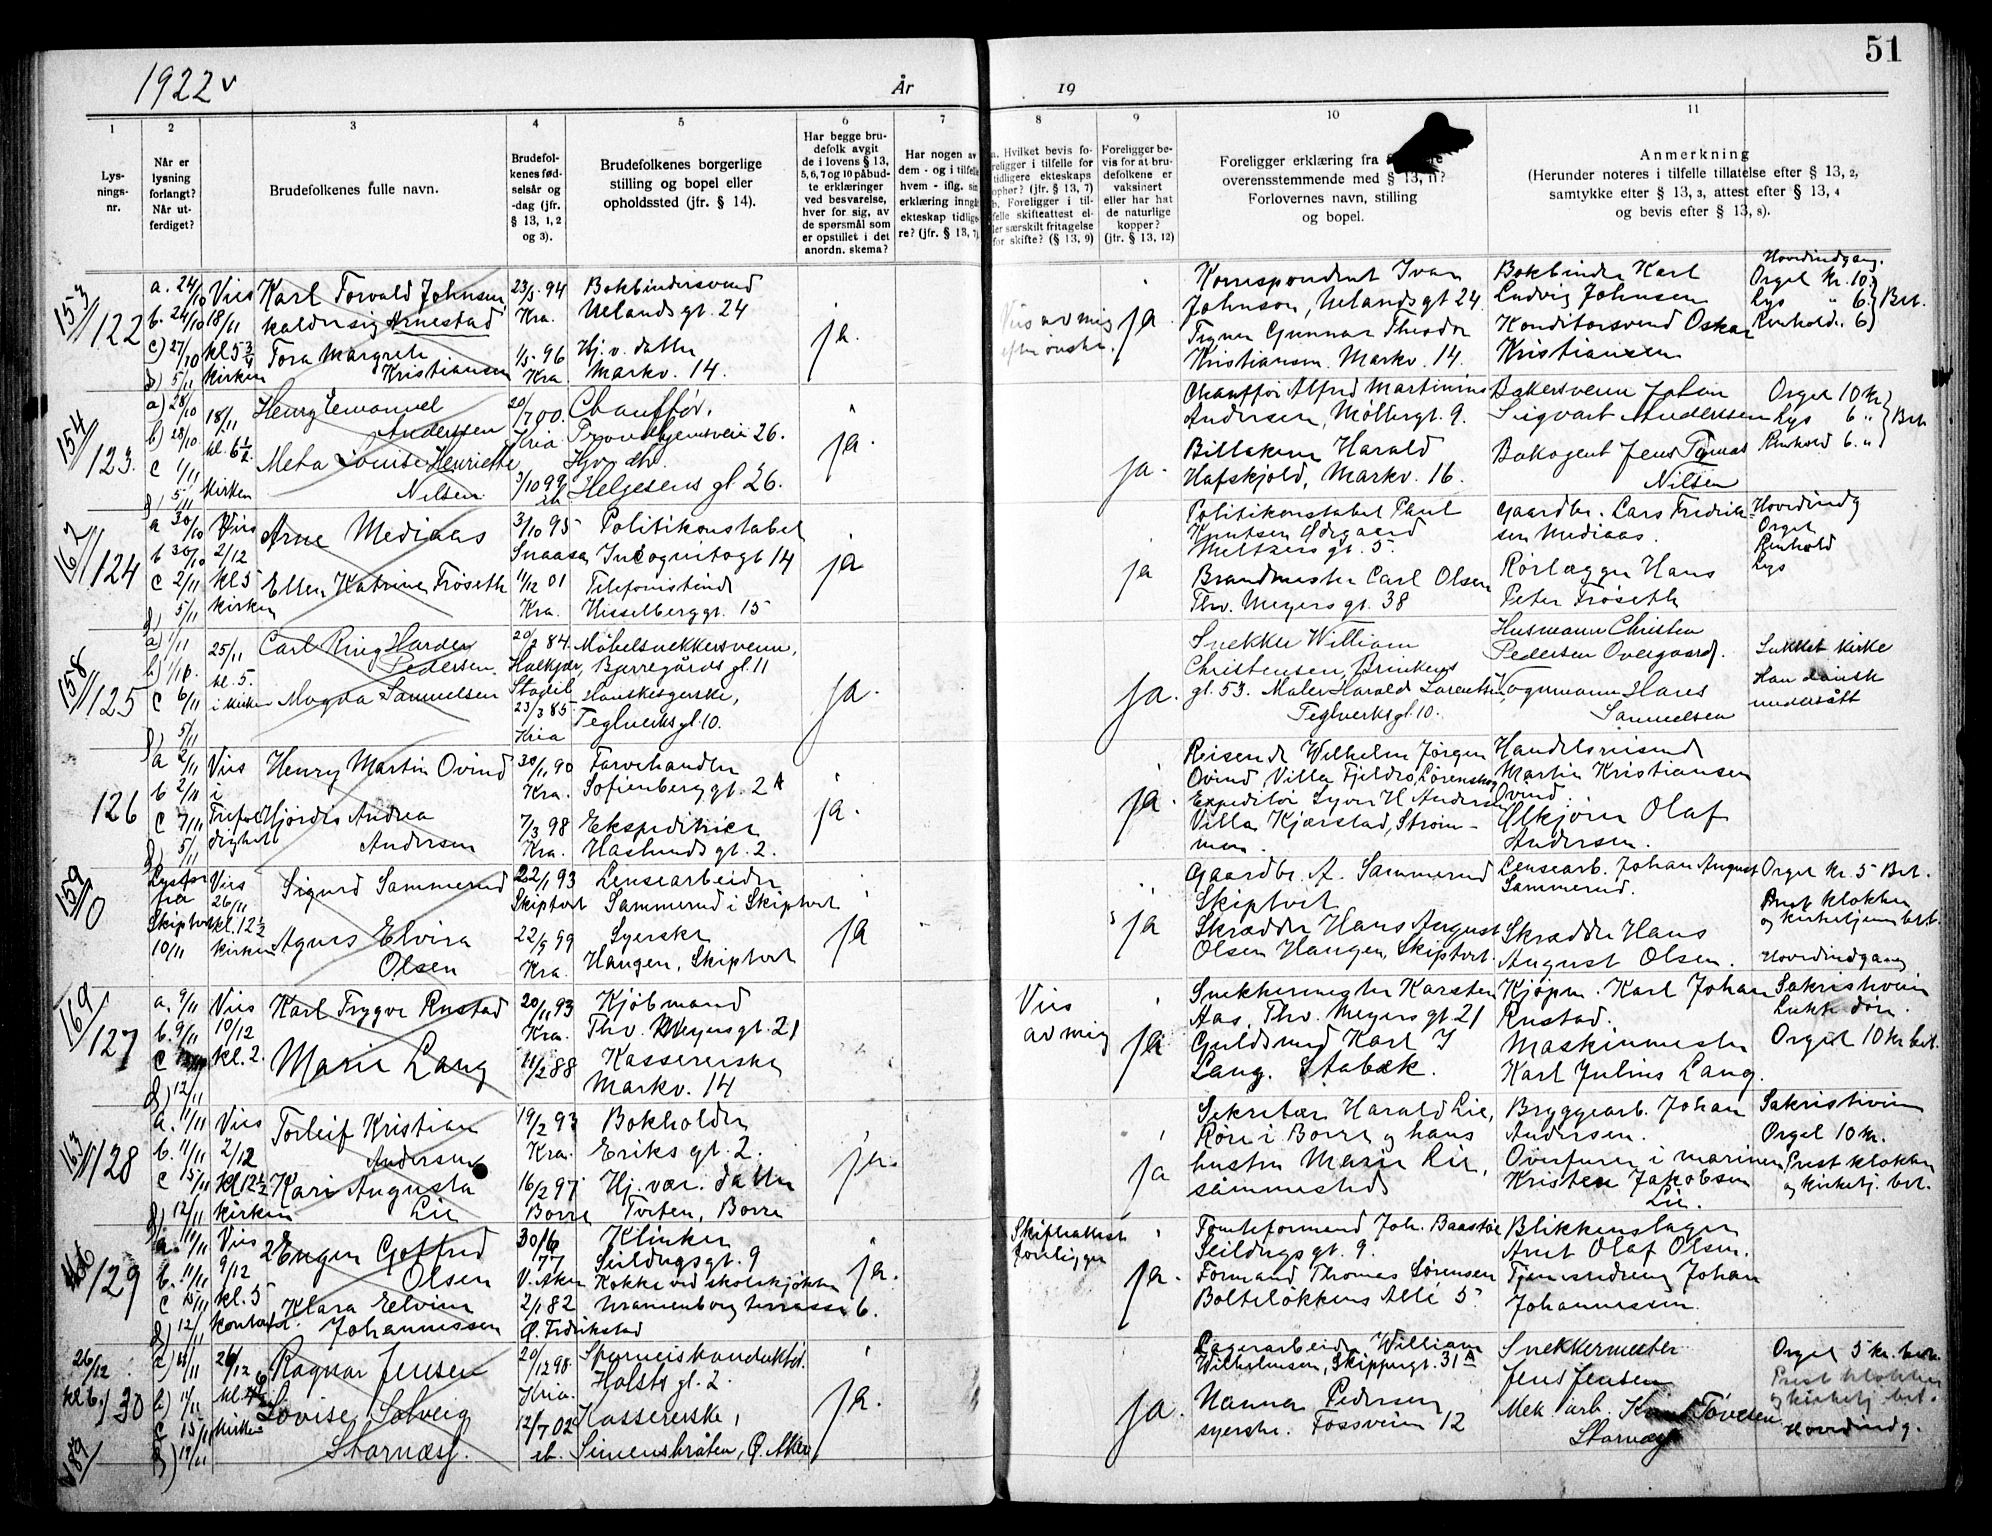 51
1922 v
År
19
1
2
3
4
5
6
7
8
9
10
11
Lys-
nings-
nr.
Når er
lysning
forlangt?
Når ut-
ferdiget?
Brudefolkenes fulle navn.
Brudefol-
kenes fød-
selsår og
-dag (jfr.
§ 13, 1, 2
og 3).
Brudefolkenes borgerlige
stilling og bopel eller
opholdssted (jfr. § 14).
Har begge bru-
defolk avgit
de i lovens § 13,
5, 6, 7 og 10 påbud-
te erklæringer
ved besvarelse,
hver for sig, av
de spørsmål som
er opstillet i det
anordn. skema?
Har nogen av
dem - og i tilfelle
hvem - iflg. sin
erklæring inngå
ekteskap tidlige-
re? (jfr. § 13, 7)
a. Hvilket bevis fo-
religger i tilfelle for
tidligere ekteskaps
ophør? (jfr. § 13, 7)
b. Foreligger i til-
felle skifteattest el-
ler særskilt fritagelse
for skifte? (§ 13, 9)
Foreligger be-
vis for at bru-
defolkene er
vaksinert
eller har hat
de naturlige
kopper?
(jfr. § 13, 12)
Foreligger erklæring fra
overensstemmende med § 13, 11?
Forlovernes navn, stilling
og bopel.
Anmerkning
(Herunder noteres i tilfelle tillatelse efter § 13, 2,
samtykke efter § 13, 3, attest efter § 13, 4
og bevis efter § 13, 8).
153/122
a. 24/10
b. 24/10
c) 27/10
d) 5/11
Vies
18/11
kl 5 3/4
kirken
Karl Torvald Johnsen
kalder sig Arnestad
Tora Margrete
Kristiansen
23/5 94
Kra.
1/5 96
Kra
Bokbindersvend
Uelandsgt. 24
Hj. v. datter
Markv. 14.
ja.
Vies av mig
efter ønske.
ja.
Korrespondent Ivar
Johnson, Uelandsgt 24
Trygve Gunnar Theodor
Kristiansen Markv. 14.
Bokbinder Karl
Ludvig Johnsen
Konditorsvend Oskar
Kristiansen
Hovedindgang.
Orgel kr. 10.
Lys " 6.
Renhold. 6
Bet.
154/123.
a) 28/10
b) 28/10.
c 1/11
d) 5/11
18/11
kl. 6 1/2
Kirken
Henry Emanuel
Anderssen
Meta Louise Henriette
Nilsen
20/7 00.
Kria
3/10 99
ib
Chauffør,
Trondhjemsveien 26.
Hgv. dtr.
Helgesens gt 26.
ja.
ja.
Chauffør Alfred Martinius
Andersen, Møllergt. 9.
Billakerer Harald
Hafskjold, Markv. 16.
Bakersvenn Johan
Sigvart Anderssen
Bokagent Jens Tomas
Nilsen
Orgel 10 kr
Lys 6 "
Renhold 6. "
Bet
162/124
a 30/10
b 30/10
c 2/11
d) 5/11
Vies
2/12
kl 5
kirken
Arne Mediaas
Ellen Katrine Frøseth
3/10 95
Snaasa
11/12 01
Kra.
Politikonstabel
Incognitogt 14
Telefonistinde
Hisselberggt. 15
ja
ja
Politikonstabel Paul
Knutsen Ødegaard
Meltzersgt. 5.
Brandmester Carl Olsen
Thv. Meyersgt. 38
Gaardbr. Lars Fredrik-
sen Mediaas.
Rørlægger Hans
Peter Frøseth
Hovedindg
Orgel
Renhold
Lys
158/125
a) 1/11
b) 1/11.
c 6/11
d) 5/11
25/11
kl. 5.
i kirken
Carl Ring Harder
Pedersen.
Magda Samuelsen
20/2 84.
Stadil
23/3 85.
Kria
Møbelsnekkersvenn,
Bjerregårds gt. 11
Hanskesyerske,
Teglverksgt. 10.
Ja.
Ja.
Snekker William
Christensen, Brinkens
gt. 53. Maler Harald Lorentsen,
Teglverksgt. 10.
Husmann Christen
Pedersen Overgaard.
Vognmann Hans
Samuelsen
Lukket kirke
Han dansk
undersått
126
a 2/11
b 2/11
c 7/11
d) 5/11
Vies
i
Henry Martin Ovind
Hjørdis Andrea
Andersen
30/11 90
Kra.
7/3 98
Kra.
Farvehandler
Sofienberggt. 2 A
Ekspeditrice
Haslunds gt. 2.
ja.
ja.
Reisende Wilhelm Jørgen
Ovind, Villa Fjeldro, Lørenskog
Expeditør Syver H Andersen
Villa Kjærstad, Strøm-
men.
Handelsreisende
Martin Kristiansen
Ovind.
Ølkjører Olaf
Andersen.
159/0
Lyst
fra
Skiptvet
10/11
Vies
26/11
kl. 12 1/2
kirken
Sigurd Sammerud
Agnes Elvira
Olsen
22/1 93
Skiptvet
22/9 99
Kra.
Lensearbeider
Sammerud i Skiptvet
Syerske
Haugen, Skiptvet
ja
ja
Gaardbr. A. Sammerud
Skiptvet
Skrædder Hans August
Olsen Haugen, Skiptvet.
Lensearb. Johan August
Sammerud.
Skrædder Hans
August Olsen.
Orgel kr. 5 Bet.
Prest klokker
og kirketjener bet.
Hovedindgang
169/127
a. 9/11
b. 9/11
c
d) 12/11
Vies
10/12
kl. 2.
Karl Trygve Rustad
Marie Lang
20/11 93
Kra.
11/2 88
Kjøbmand
Thv. Meyersgt. 21
Kassererske
Markv. 14
Vies
av mig
ja
Snekkermester Karsten
Aas, Thv. Meyersgt 21
Guldsmed Karl J
Lang. Stabæk.
Kjøpm. Karl Johan
Rustad.
Maskinmester
Karl Julius Lang.
Sakristiveien
Lukte døre.
Orgel 10 kr bet.
163/128
a. 11/11
b. 11/11
c 15/11
d) 12/11
Vies
2/12
kl 12 1/2
kirken
Torleif Kristian
Andersen
Kari Augusta
Lie
19/2 93
Kra.
16/2 97
Borre
Bokholder
Eriks gt. 2.
Hj. vær. datter
Tveten, Borre
ja.
ja
Sekretær Harald Lie,
Røre i Borre og hans
hustru Marie Lie,
sammesteds
Bryggearb. Johan
Andersen.
Overfurer i marinen
Kristen Jakobsen
Lie.
Sakristiveien
Orgel 10 kr.
Prest klokker
og kirketj. bet.
129
a. 11/11
b. 11/11
c 15/11
d) 12/11
Vies
9/12
kl. 5
Eugen Gotfred
Olsen
Klara Elvine
Johannessen
30/6
77
V. Aker
2/1 82
Ø. Fredrikstad
Klinker
Seildugsgt. 9
Kokke ved skolekjøkken
Uranienborg terrasse 6.
ja.
Skifteattest
foreligger
ja.
Tomteformand Joh. Baastøe
Seildugsgt. 9.
Formand Thomas Sørensen
Bolteløkkens Allé 5
Blikkenslager
Arnt Olaf Olsen.
Johan
Johannessen.
26/12
kl 6.
130
189/
a) 11/11
b) 11/11
c 15/11
d) 12/11
26/12
kirken
Ragnar Jensen
Lovise Solveig
Stornæs.
20/12 98
Kria.
12/7 02
ib.
Sporveiskonduktør.
Holsts gt. 2.
Kassererske,
Simensbråten, Ø. Aker
ja.
ja.
Lagerarbeider William
Wilhelmsen, Skippergt. 31 A
Nanna Pedersen
syerske. Fossveien 12
Snekkermester
Jens Jensen
Mek. arb. Tovesen
Stornæs
Orgel 5 kr. bet.
Prest klokker
og kirketj. bet.
Hovedindg.